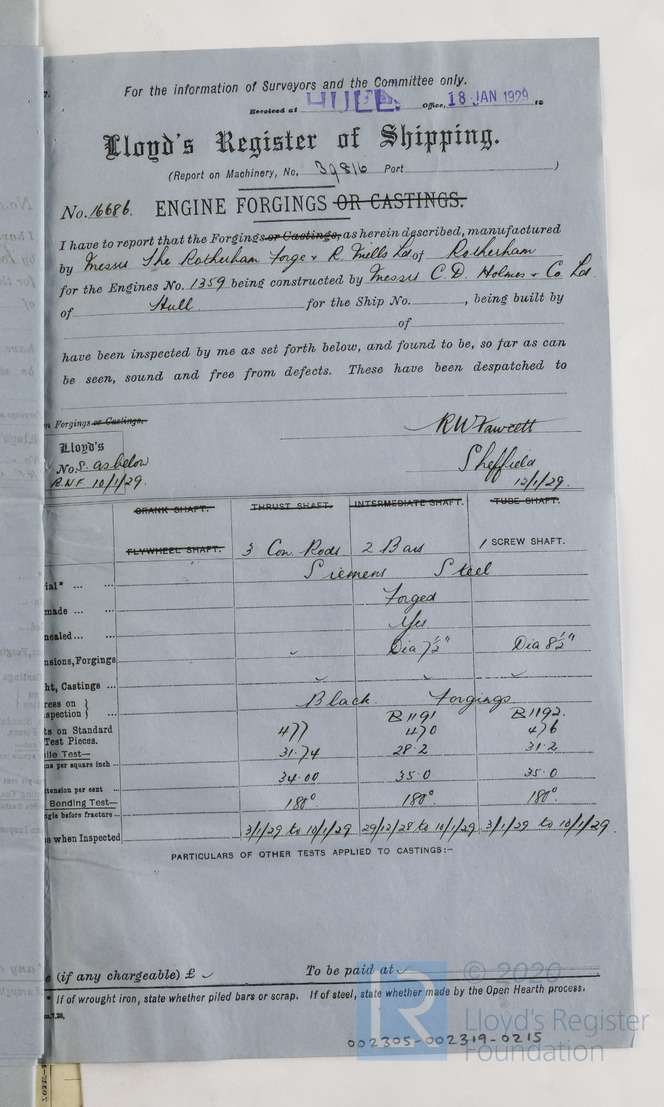 7.
For the information of Surveyors and the Committee only.
Received at HULL Office, 18 JAN 1929 19
Lloyd's Register of Shipping.
(Report on Machinery, No. 39816 Port )
No. 16686. ENGINE FORGINGS OR CASTINGS.
I have to report that the Forgings or Castings, as herein described, manufactured
by Messrs The Rotherham Forge & R Mills Ld of Rotherham
for the Engines No. 1359 being constructed by Messrs C. D. Holmes & Co Ld
of Hull for the Ship No. , being built by
of
have been inspected by me as set forth below, and found to be, so far as can
be seen, sound and free from defects. These have been despatched to
n Forgings or Castings,
RW Fawcett
Lloyd's
Nos. as below
Sheffield
R.W.F. 10/1/29.
12/1/29.
CRANK SHAFT. THRUST SHAFT. INTERMEDIATE SHAFT. TUBE SHAFT.
FLYWHEEL SHAFT. 3 Con Rods 2 Bars 1 SCREW SHAFT.
ial* ... ... Siemens Steel
made ... ... Forged
nealed ... ... Yes
nsions, Forgings Dia 7½" Dia 8½"
ht, Castings ...
ress on } Black Forgings
spection } B1191 B1192.
ts on Standard 477 470 476
Test Pieces.
ile Test— 31.74 28.2 31.2
ns per square inch ...
tension per cent ... 34.00 35.0 35.0
Bending Test— 180° 180° 180°
ngle before fracture ...
s when Inspected 3/1/29 to 10/1/29 29/12/28 to 10/1/29 3/1/29 to 10/1/29.
PARTICULARS OF OTHER TESTS APPLIED TO CASTINGS:—
e (if any chargeable) £ To be paid at
* If of wrought iron, state whether piled bars or scrap. If of steel, state whether made by the Open Hearth process.
© 2020
Lloyd's Register
Foundation
002305-002319-0215